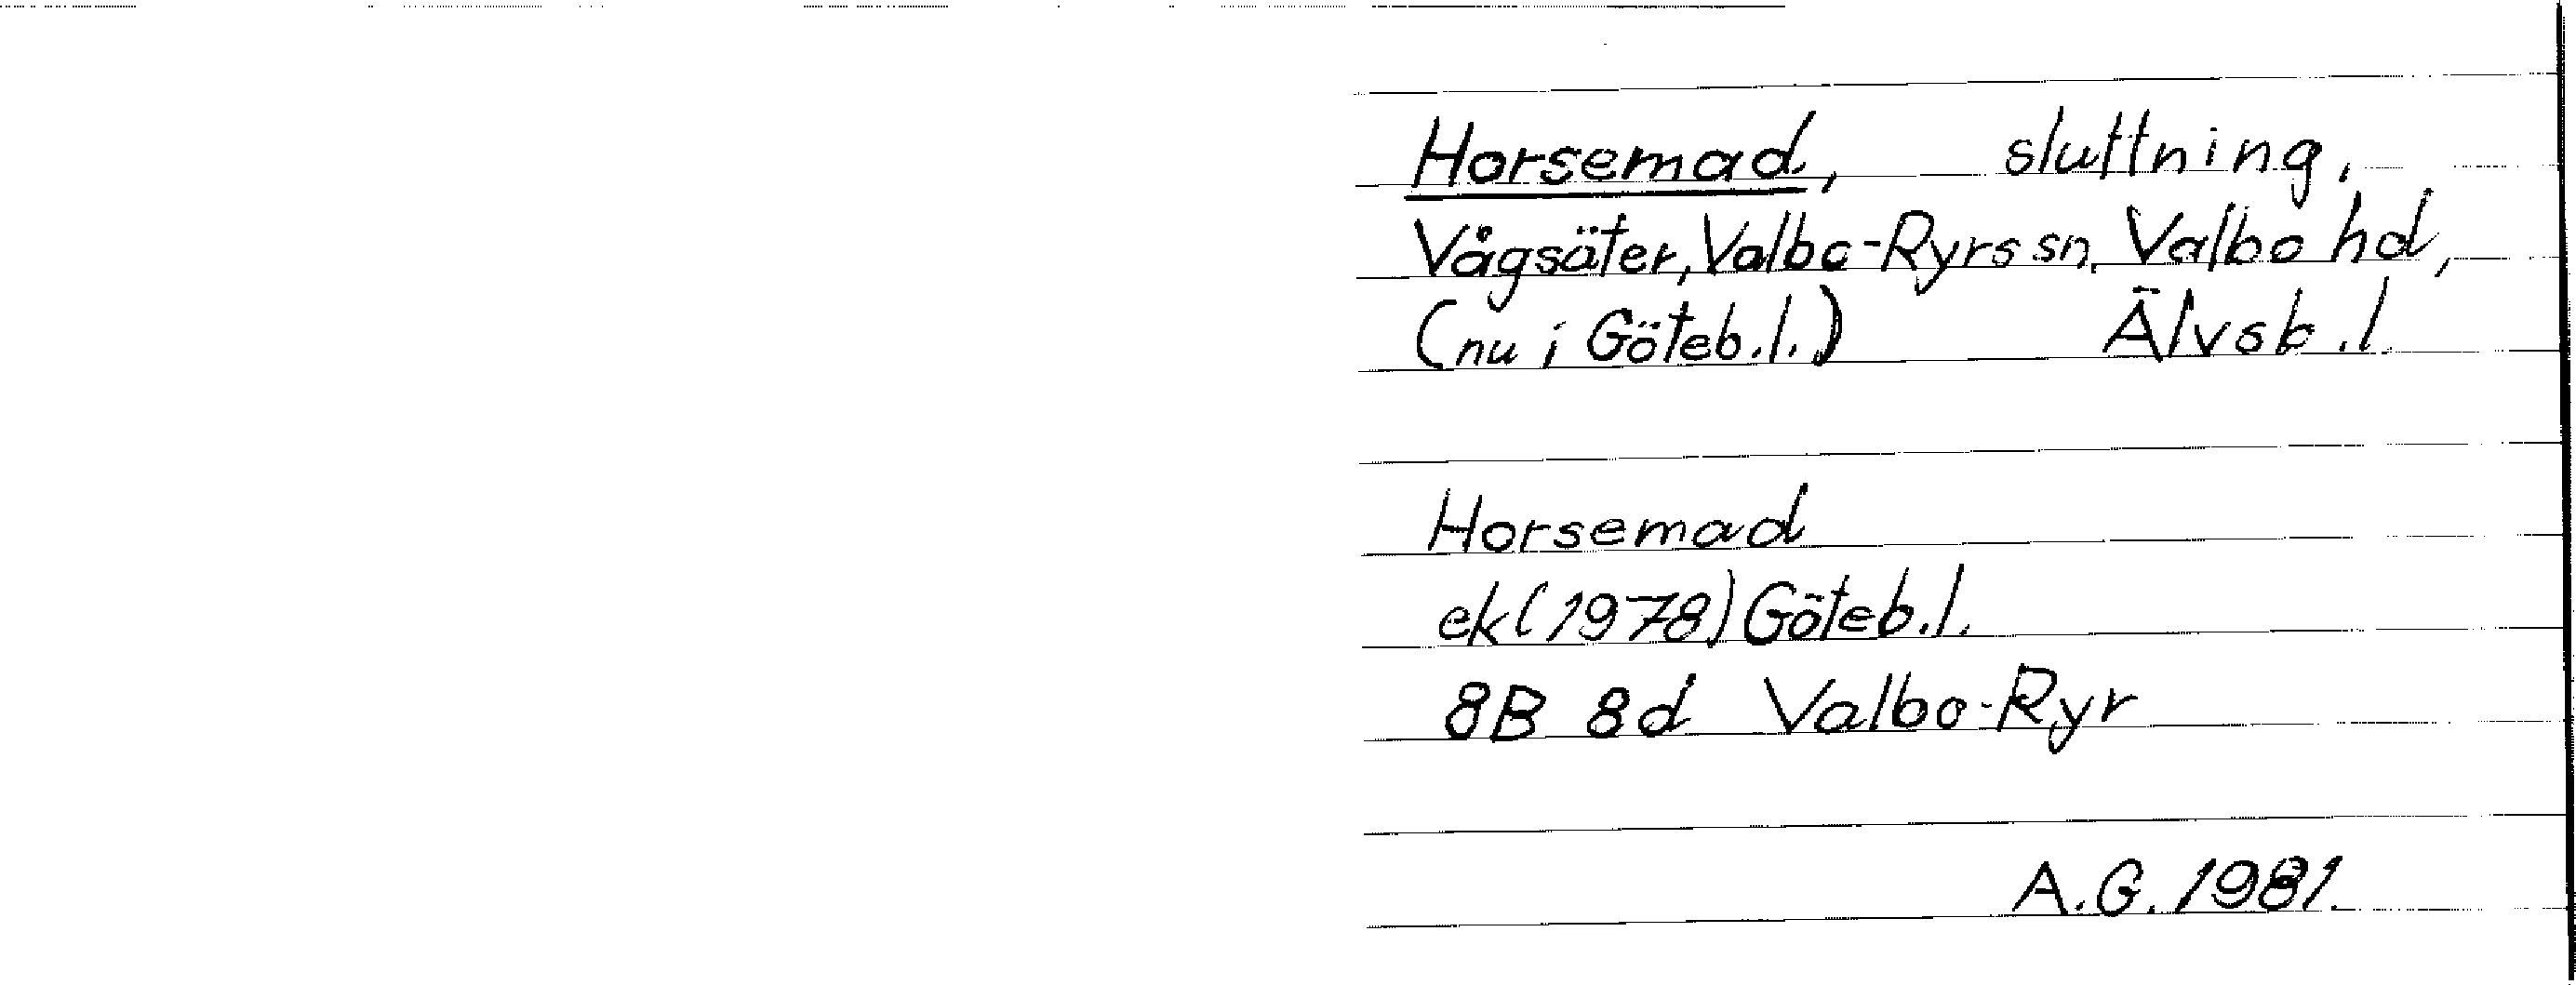 Horsemad, sluttning,
Vågsäter, Valbo-Ryrs sn, Valbo hd,
(nu i Göteb.l.) Älvsb.l.
Horsemad
ek(1978) Göteb.l.
8B 8d Valbo-Ryr
A.G. 1981.